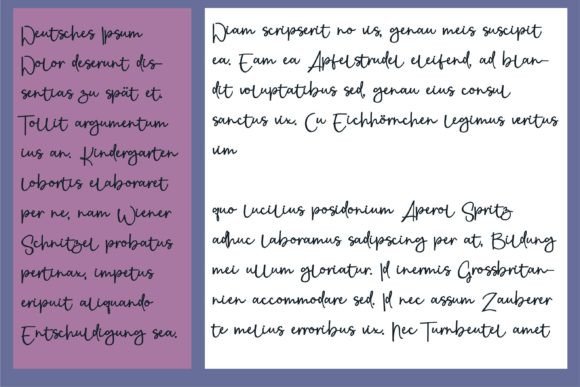 Deutsches Ipsum
Dolor deserunt dis-
sentias zu spät et.
Tollit argumentum
ius an. Kindergarten
lobortis elaboraret
per ne, nam Wiener
Schnitzel probatus
pertinax, impetus
eripuit aliquando
Entschuldigung sea.
Diam scripserit no vis, genau meis suscipit
ea. Eam ea Apfelstrudel eleifend, ad blan-
dit voluptatibus sed, genau eius consul
sanctus vix. Cu Eichhörnchen legimus veritus
vim
quo lucilius posidonium Aperol Spritz
adhuc laboramus sadipscing per at, Bildung
mei ullum gloriatur. Id inermis Grossbritan-
nien accommodare sed. Id nec assum Zauberer
te melius erroribus vix. Nec Turnbeutel amet